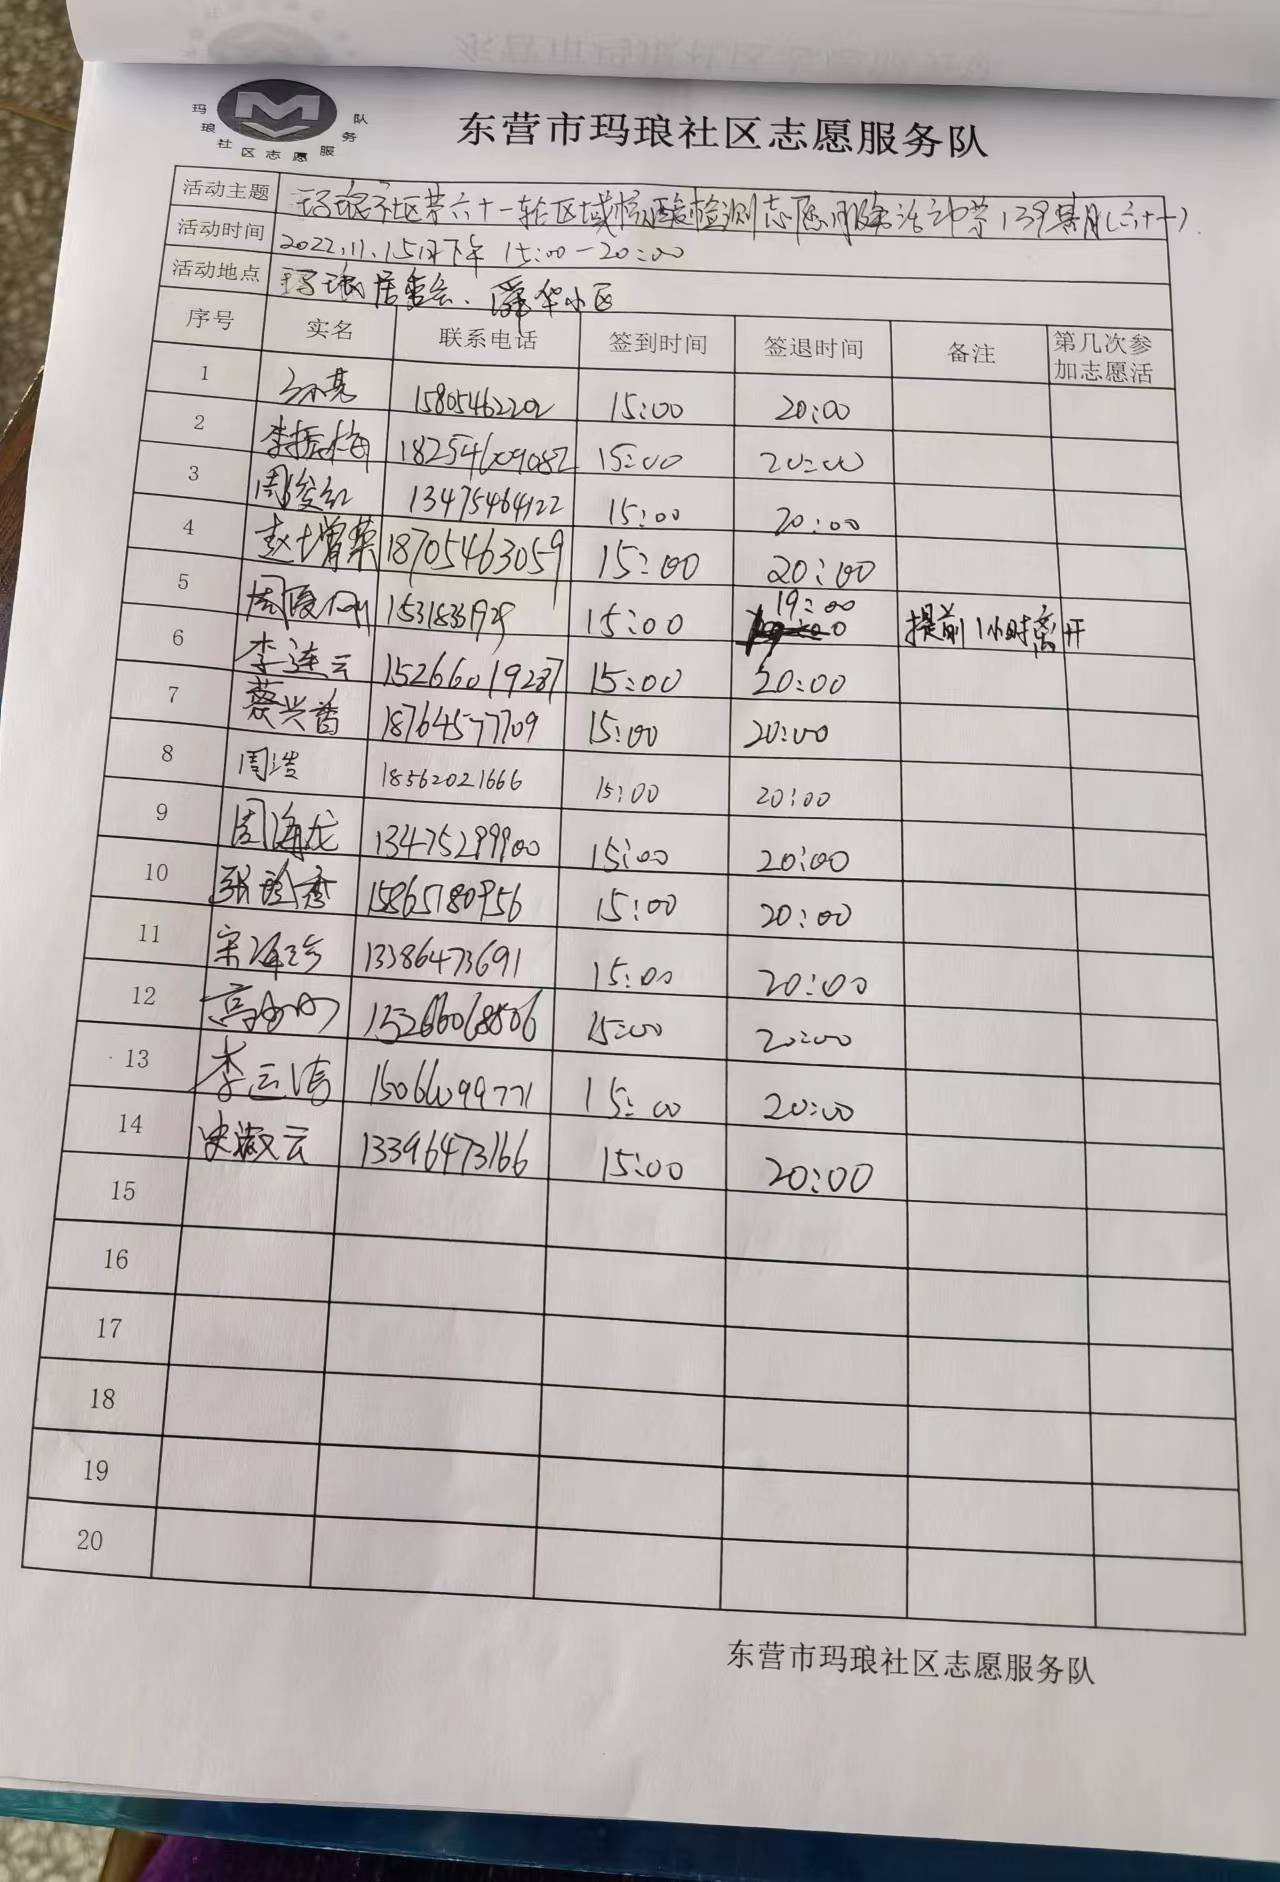 玛琅社区志愿服务队
东营市玛琅社区志愿服务队
活动主题 玛琅社区第六十一轮区域核酸检测志愿服务活动中第139期(六十一)
活动时间 2022.11.15日下午 15:00-20:00
活动地点 玛琅居委会、舜华小区
序号 实名 联系电话 签到时间 签退时间 备注 第几次参加志愿活
1 孙亮 15805462202 15:00 20:00
2 李振梅 18254609082 15:00 20:00
3 周俊红 13475464122 15:00 20:00
4 赵增荣 18705463059 15:00 20:00
5 周 15:00 19:00 提前1小时离开
6 李连云 15266019287 15:00 20:00
7 蔡兴香 18764577709 15:00 20:00
8 周浩 18562021666 15:00 20:00
9 周海龙 13475299900 15:00 20:00
10 张珍秀 15865180956 15:00 20:00
11 宋海珍 13386473691 15:00 20:00
12 高 15266068506 15:00 20:00
13 李云清 15066099771 15:00 20:00
14 史淑云 13396473166 15:00 20:00
15
16
17
18
19
20
东营市玛琅社区志愿服务队